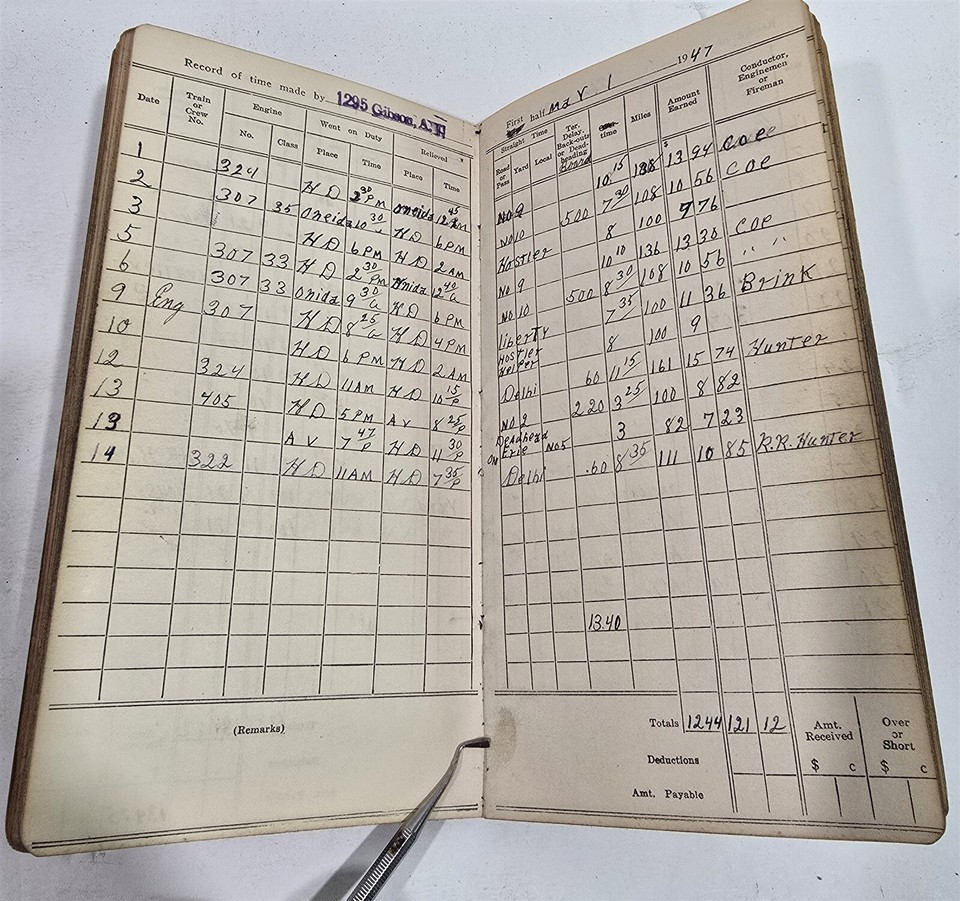 Record of time made by 1295 Gibson, A.
Date
Train or Crew No.
Engine
No.
Class
Went on Duty
Place
Time
Relieved
Place
Time
1 324 H D 2 30 PM Oneida 12 45
2 307 35 Oneida 10 30 H D 6 PM
3 H D 6 PM H D 2 AM
5 307 33 H D 2 30 PM Onida 12 40 a
6 307 33 Onida 9 30 a H D 6 PM
9 Eng 307 H D 8 25 a H D 4 PM
10 H D 6 PM H D 2 AM
12 324 H D 11 AM H D 10 15 P
13 405 H D 5 PM A V 8 25 P
13 A V 7 47 P H D 11 30 P
14 322 H D 11 AM H D 7 35 P
(Remarks)
First half May 1 1947
Straight Time
Road or Pass
Yard
Local
Ter. Delay, Back-outs or Dead-heading
time
Miles
Amount Earned
$
Conductor, Enginemen or Fireman
No 9 10 15 138 13 94 Coe
No 10 500 7 30 108 10 56 COE
Hostler 8 100 7 76
No 9 10 10 136 13 30 COE
No 10 500 8 30 108 10 56 " "
Liberty 7 35 100 11 36 Brink
Hostler Helper 8 100 9
Delhi 60 11 15 161 15 74 Hunter
No 2 220 3 25 100 8 82
Deadhead on Erie No 5 3 82 7 23
Delhi .60 8 35 111 10 85 R.R. Hunter
13.40
Totals 1244 121 12
Amt. Received
Over or Short
Deductions
$ c $ c
Amt. Payable